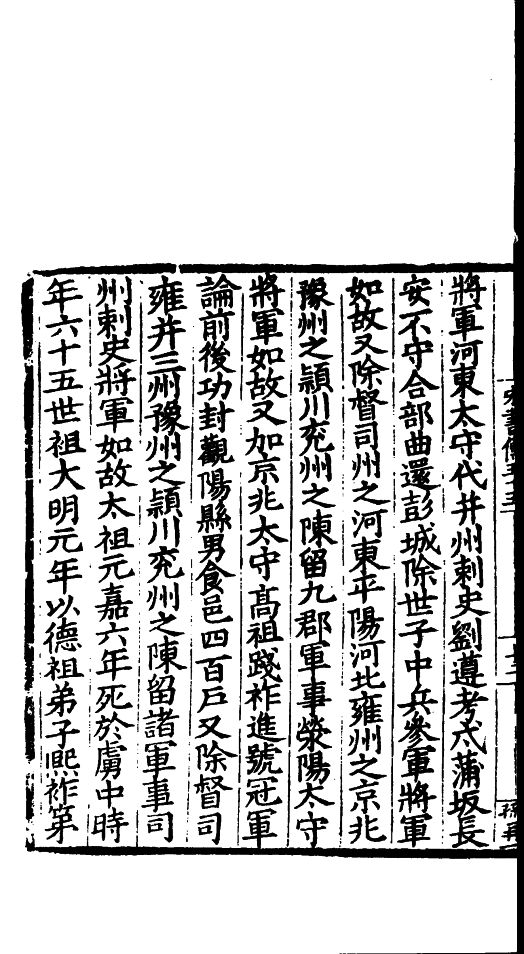 將軍河東太守代并州刺史劉遵考戍蒲坂長
安不守合部曲還彭城除世子中兵參軍將軍
如故又除督司州之河東平陽河北雍州之京兆
豫州之頴川兖州之陳留九郡軍事滎陽太守
將軍如故又加京兆太守髙祖踐祚進號冠軍
論前後功封觀陽縣男食邑四百戶又除督司
雍并三州豫州之頴川兖州之陳留諸軍事司
州刺史將軍如故太祖元嘉六年死於虜中時
年六十五世祖大明元年以德祖弟子熙祚第